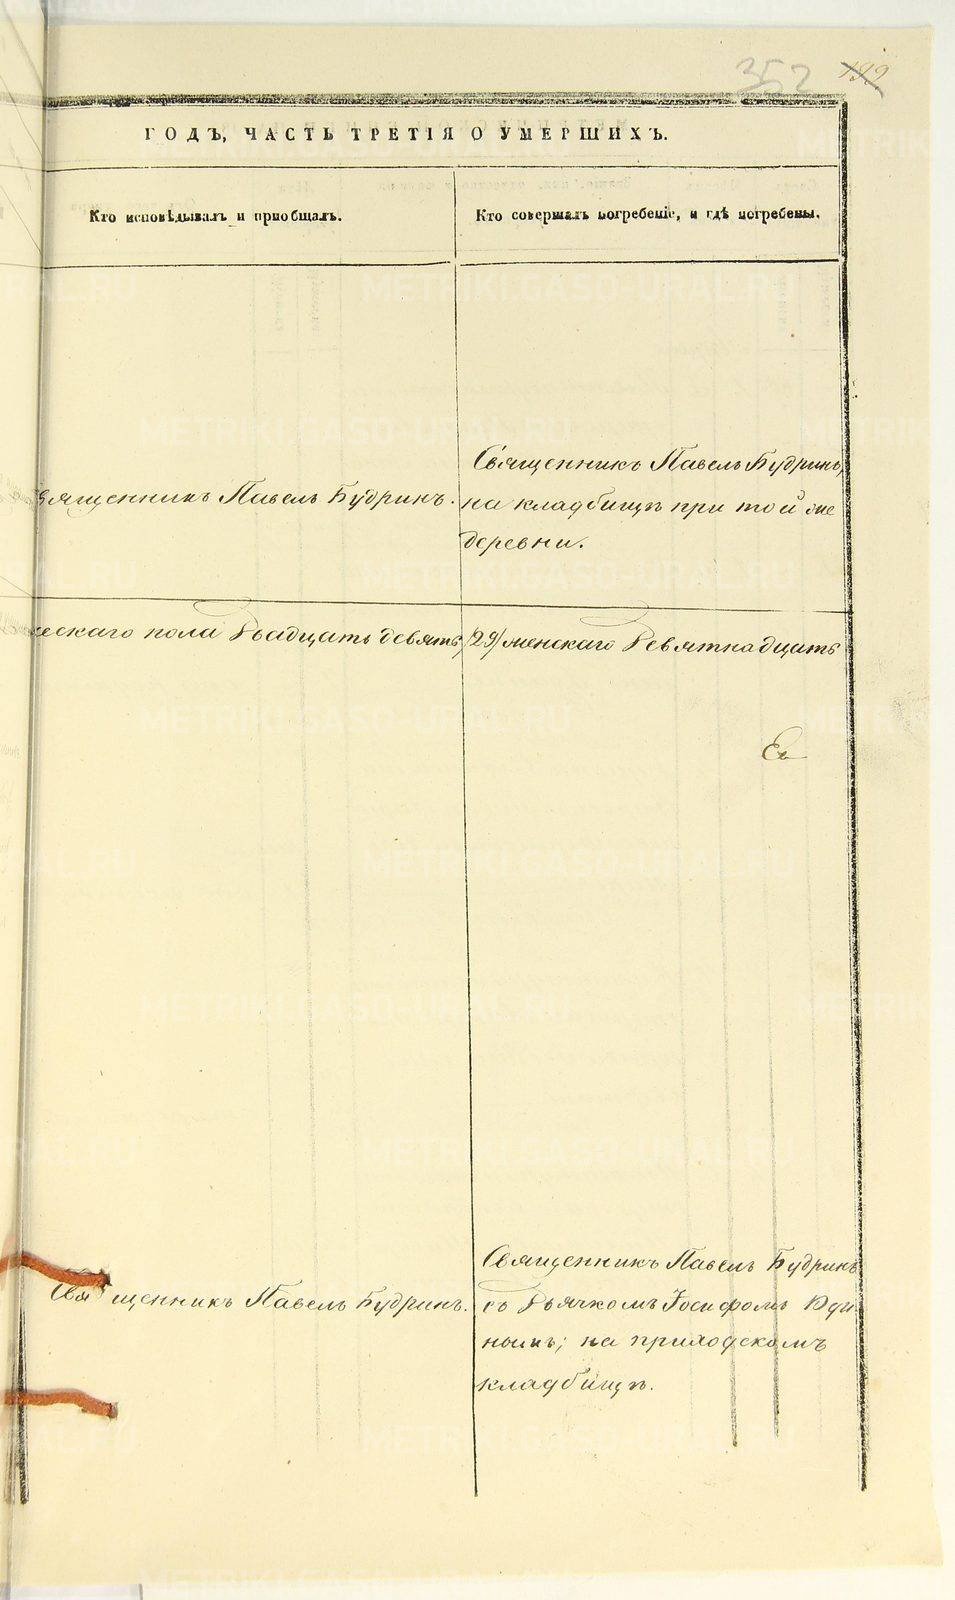 352 199
ГОДЪ, ЧАСТЬ ТРЕТІЯ О УМЕРШИХЪ.
Кто исповѣдывалъ и пріобщалъ.
Кто совершалъ погребеніе, и гдѣ погребены.
Священникъ Павелъ Будринъ,
вященникъ Павелъ Будринъ.
на кладбищѣ при той же
деревни.
ескаго пола двадцать девять, /29/ женскаго девятнадцать
Священникъ Павелъ Будринъ
Священникъ Павелъ Будринъ.
съ Дьячкомъ Іосифомъ Юди
нымъ; на приходскомъ
кладбищѣ.
METRIKI.GASO-URAL.RU